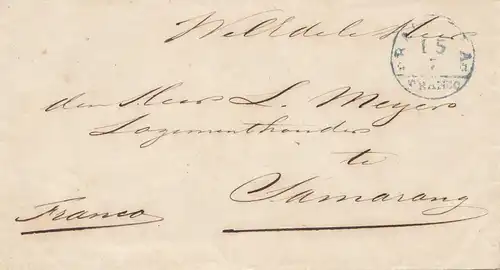 WelEdele Heer
den Heer L. Meyers
Logementhouder
te
Samarang
Franco
15
7
FRANCO